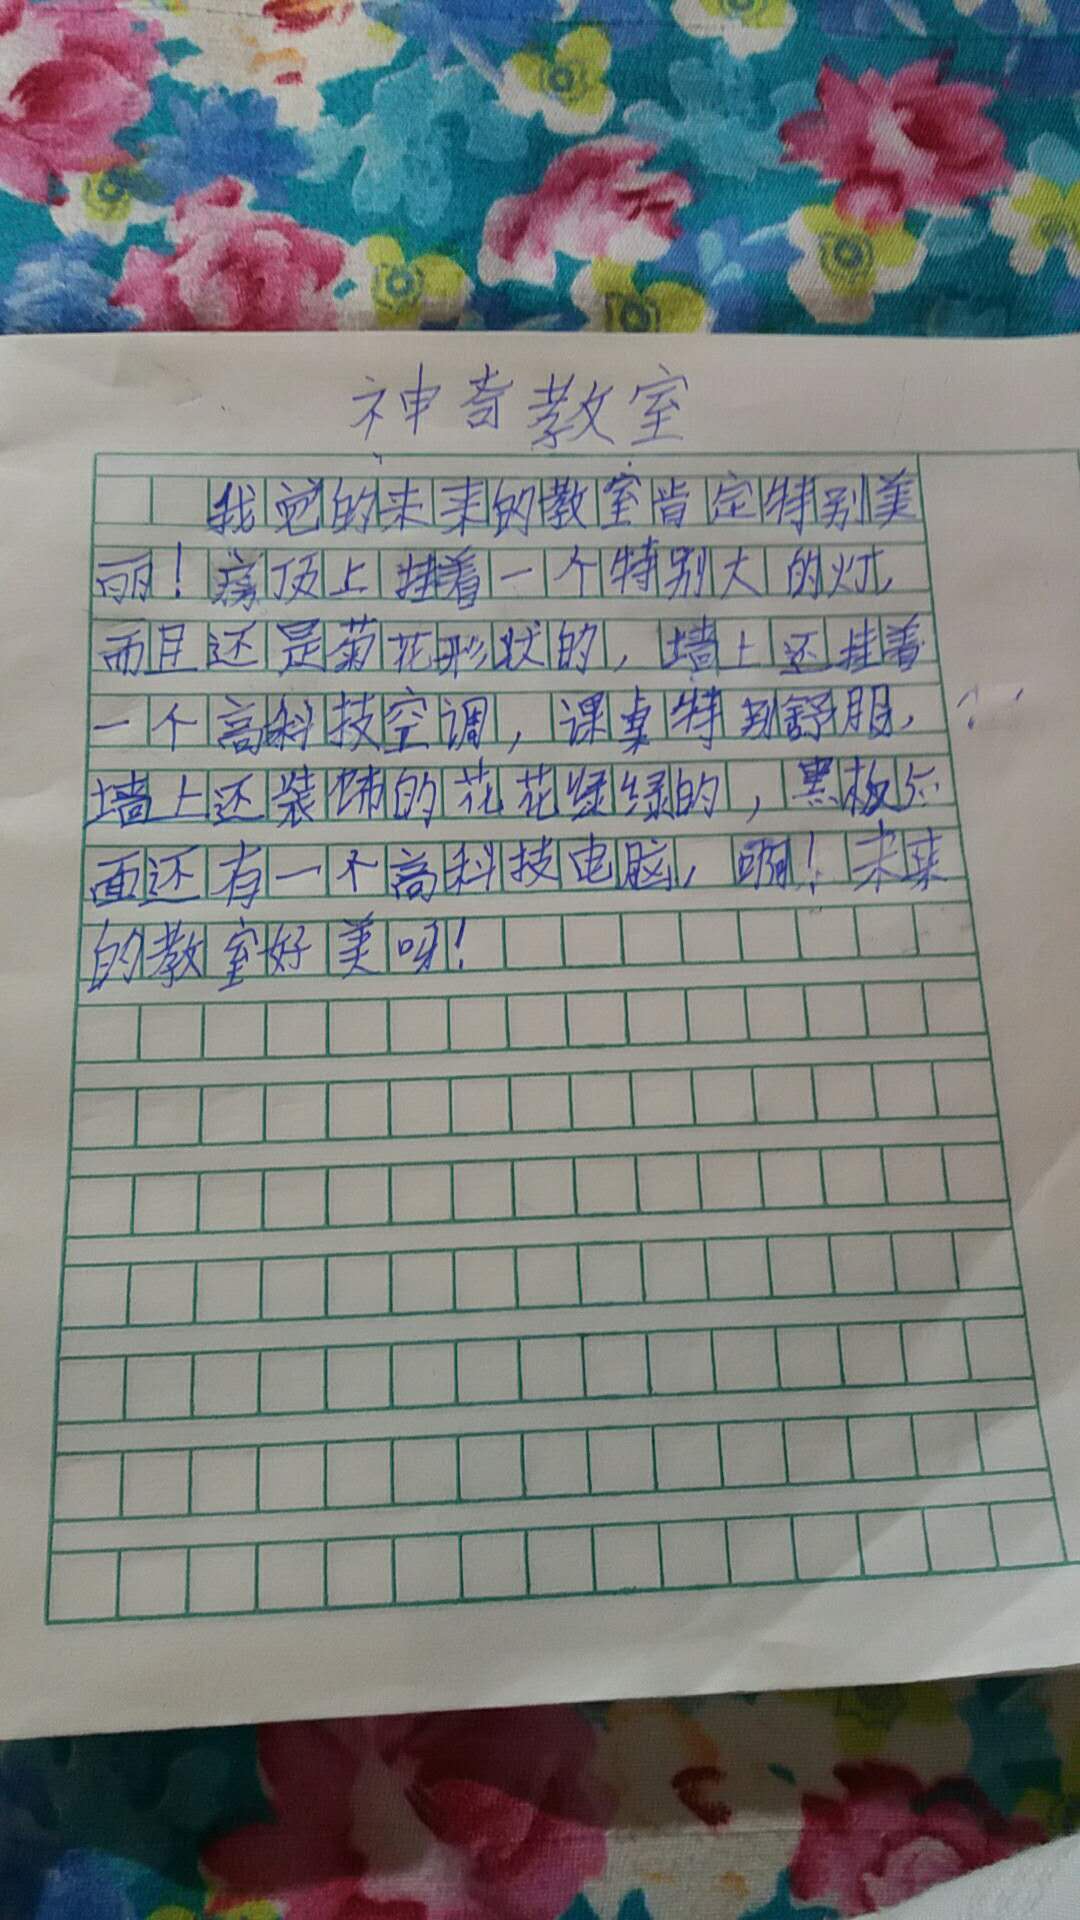 神奇教室
我觉的未来的教室肯定特别美
丽！房顶上挂着一个特别大的灯，
而且还是菊花形状的，墙上还挂着
一个高科技空调，课桌特别舒服，
墙上还装饰的花花绿绿的，黑板后
面还有一个高科技电脑，啊！未来
的教室好美呀！